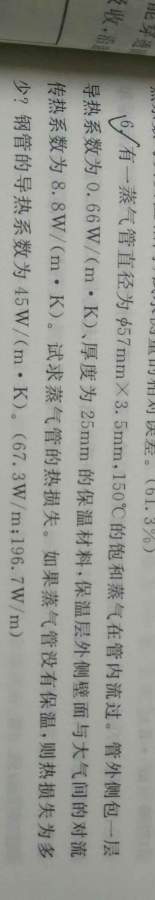 能穿
吸收,
相对误差。(61.3%)
6 有一蒸气管直径为φ57mm×3.5mm,150℃的饱和蒸气在管内流过。管外侧包一层
导热系数为0.66W/(m·K)、厚度为25mm的保温材料,保温层外侧壁面与大气间的对流
传热系数为8.8W/(m·K)。试求蒸气管的热损失。如果蒸气管没有保温,则热损失为多
少?钢管的导热系数为45W/(m·K)。(67.3W/m;196.7W/m)